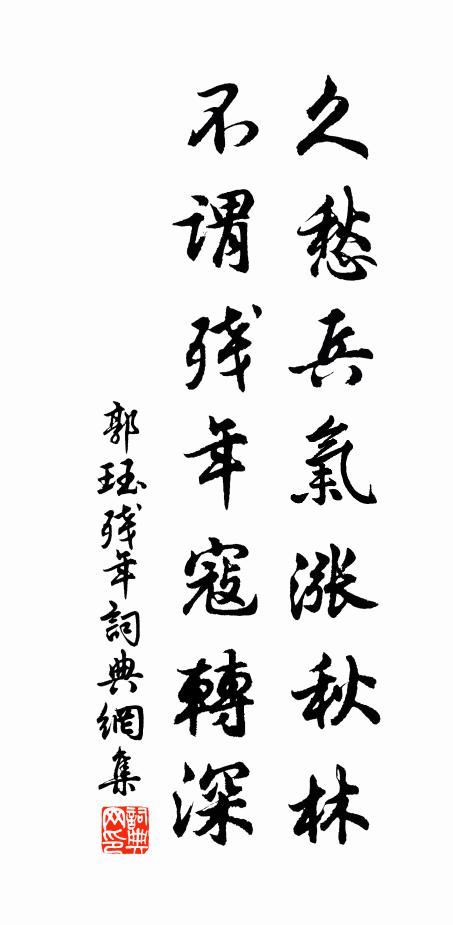 久愁兵氣漲秋林
不謂残年寇轉深
郭珏残年詞典網集
詞典网印